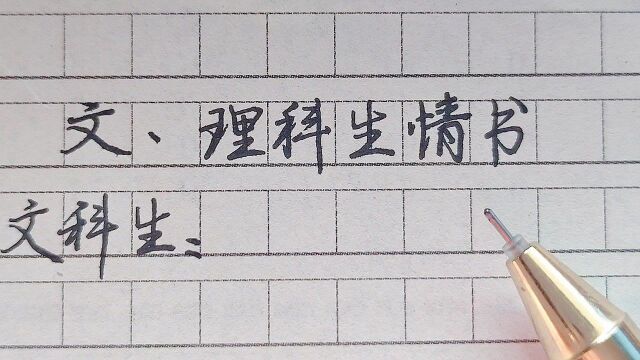 文、理科生情书
文科生：